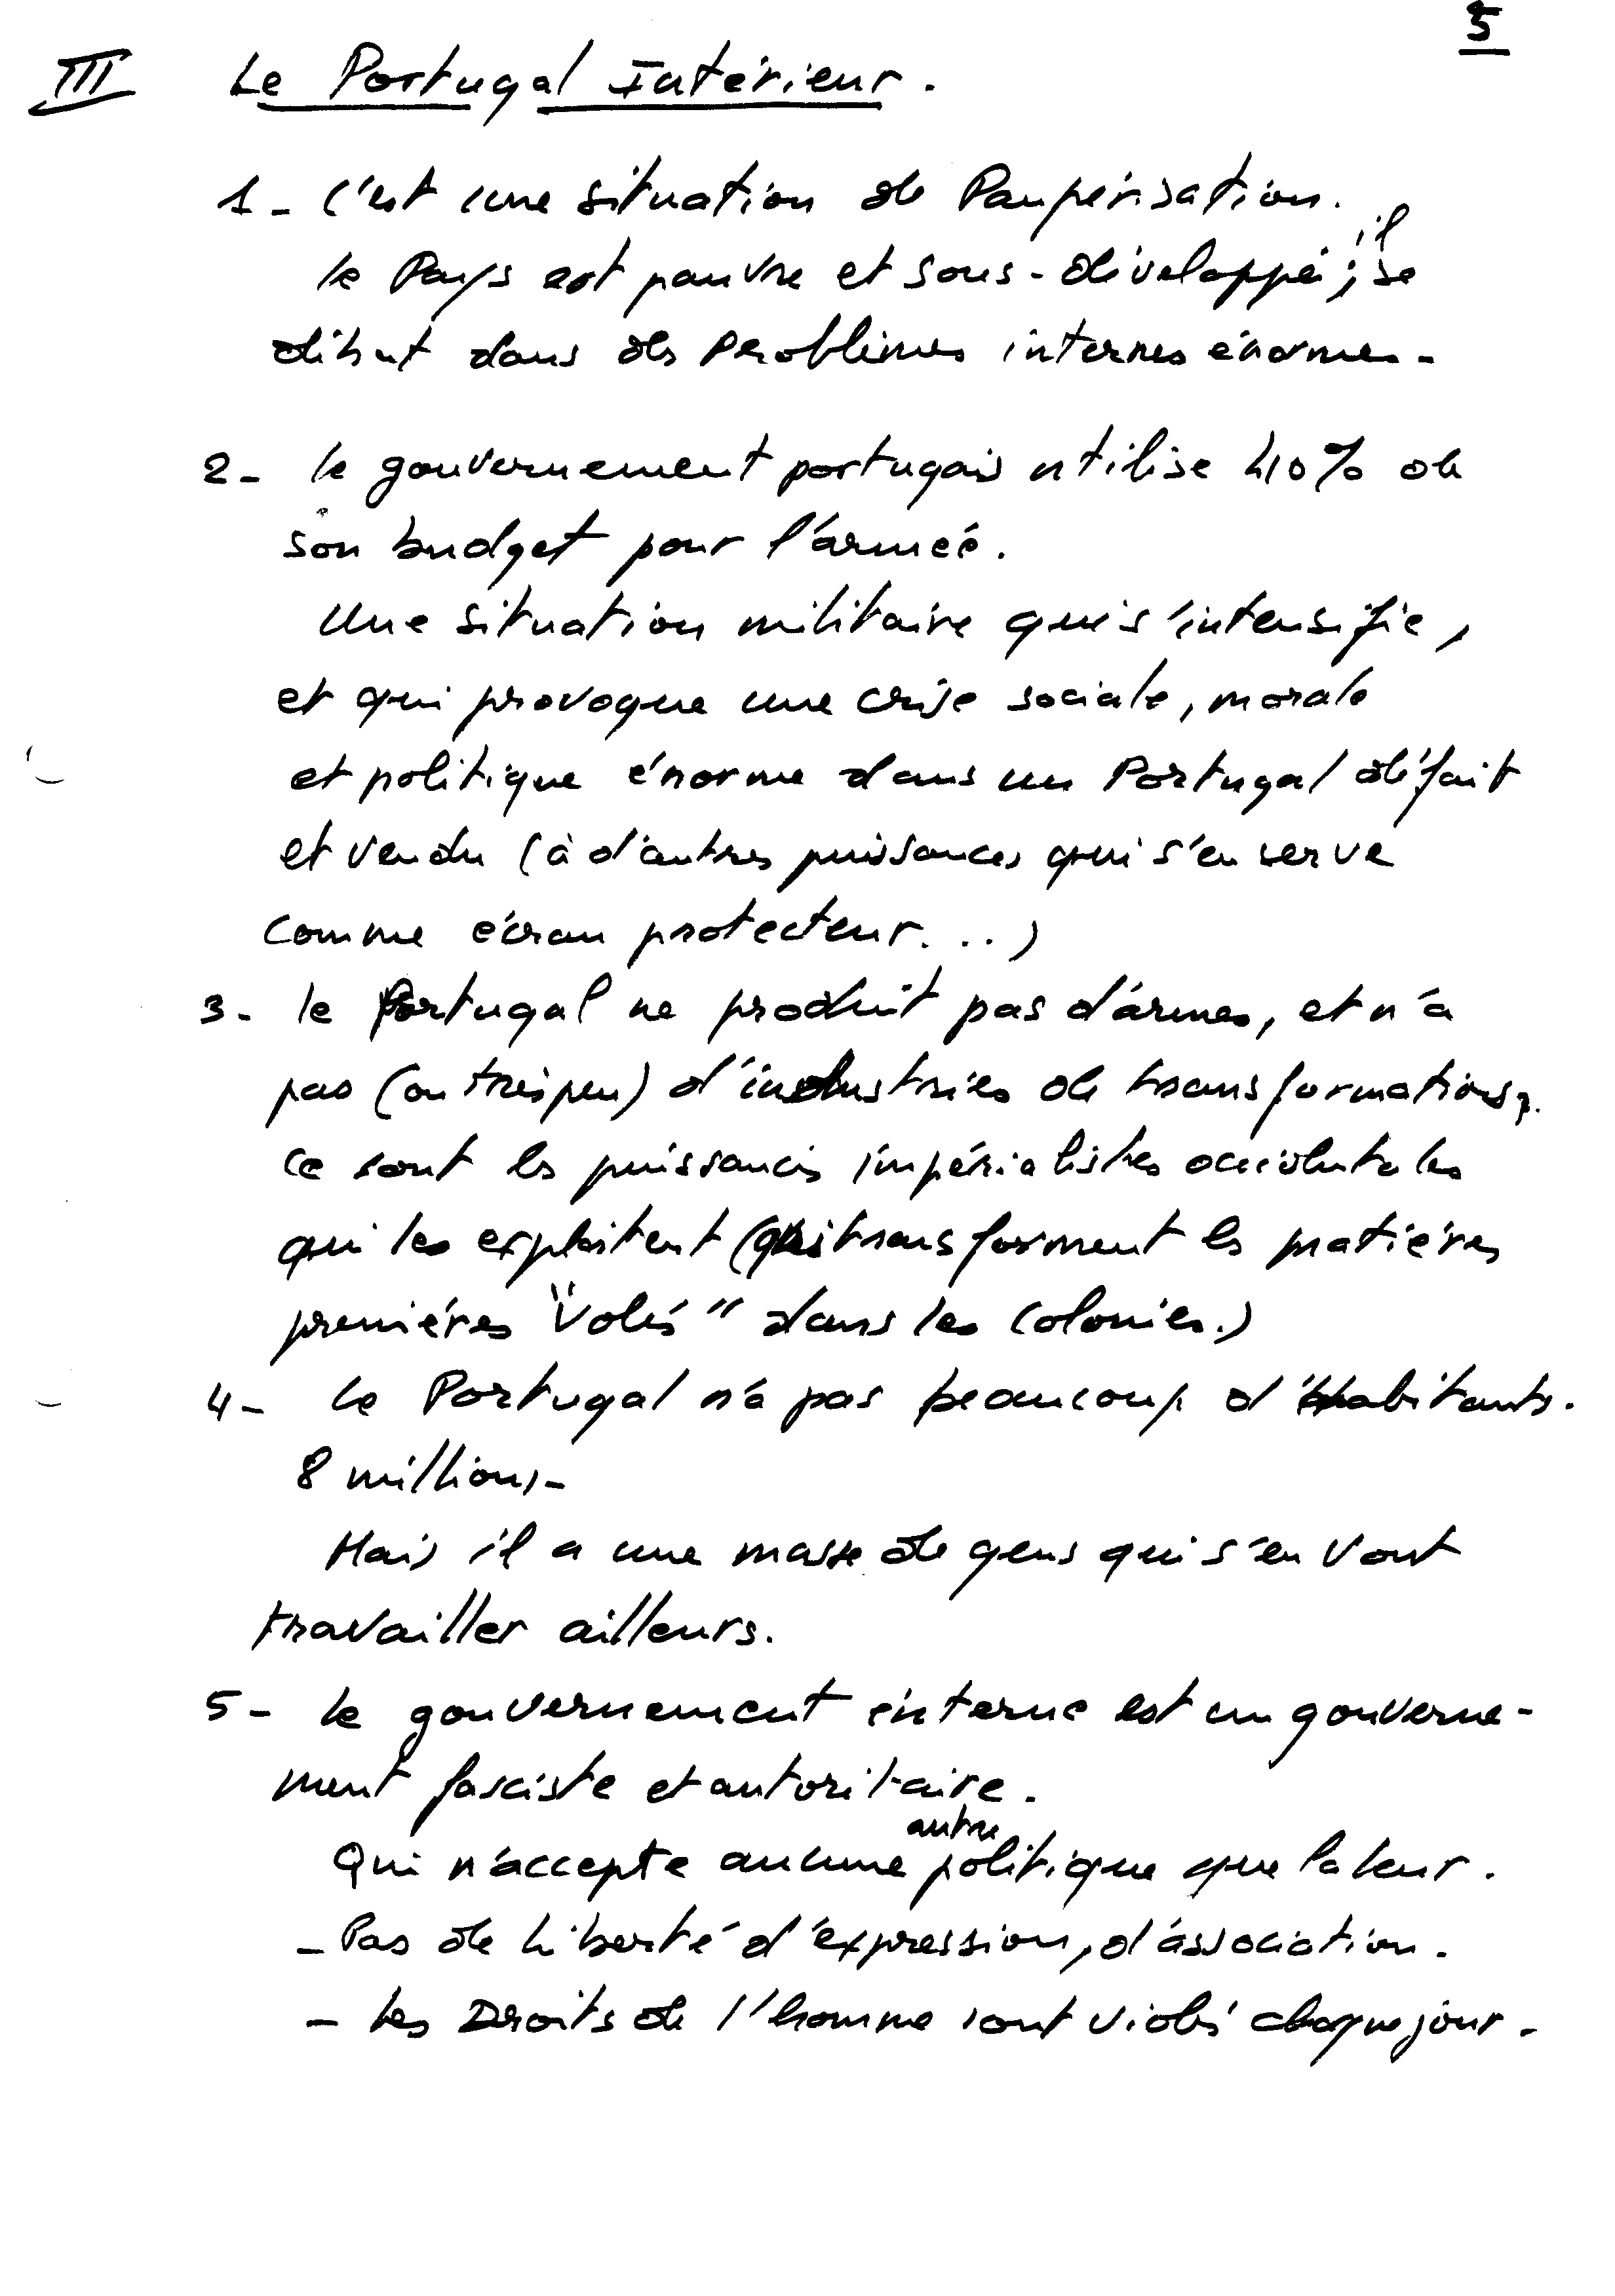 5
III Le Portugal Intérieur.
1 - C'est une situation de Paupérisation.
il
le Pays est pauvre et sous-développé ; se
débat dans des problèmes internes énormes -
2 - le gouvernement portugais utilise 40% de
son budget pour l'armée.
Une situation militaire qui s'intensifie,
et qui provoque une crise sociale, morale
et politique énorme dans un Portugal défait
et vendu (à d'autres puissances qui s'en serve
comme écran protecteur...)
3 - le Portugal ne produit pas d'armes, et n'a
pas (ou très peu) d'industries de transformations,
ce sont les puissances impérialistes occidentales
qui les exploitent (qui transforment les matières
premières "volés" dans les colonies.)
4 - Le Portugal n'a pas beaucoup d'habitants.
8 millions -
Mais il a une masse de gens qui s'en vont
travailler ailleurs.
5 - le gouvernement interne est un gouverne-
ment fasciste et autoritaire.
autre
Qui n'accepte aucune politique que la leur.
- Pas de liberté d'expression, d'association.
- Les Droits de l'homme sont violés chaque jour -